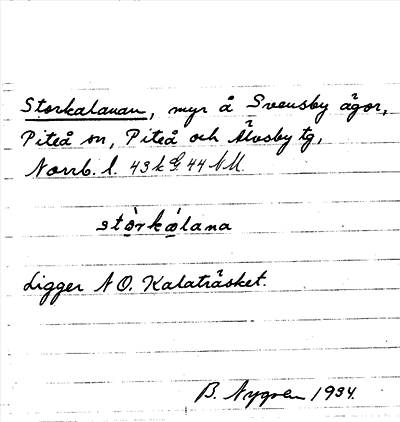 Storkalanan, myr å Svensby ägor,
Piteå sn, Piteå och Älvsby tg,
Norrb. l. 43 k G. 44 NM.
stòrkálana
Ligger NO. Kalaträsket.
B. Nygren 1934.